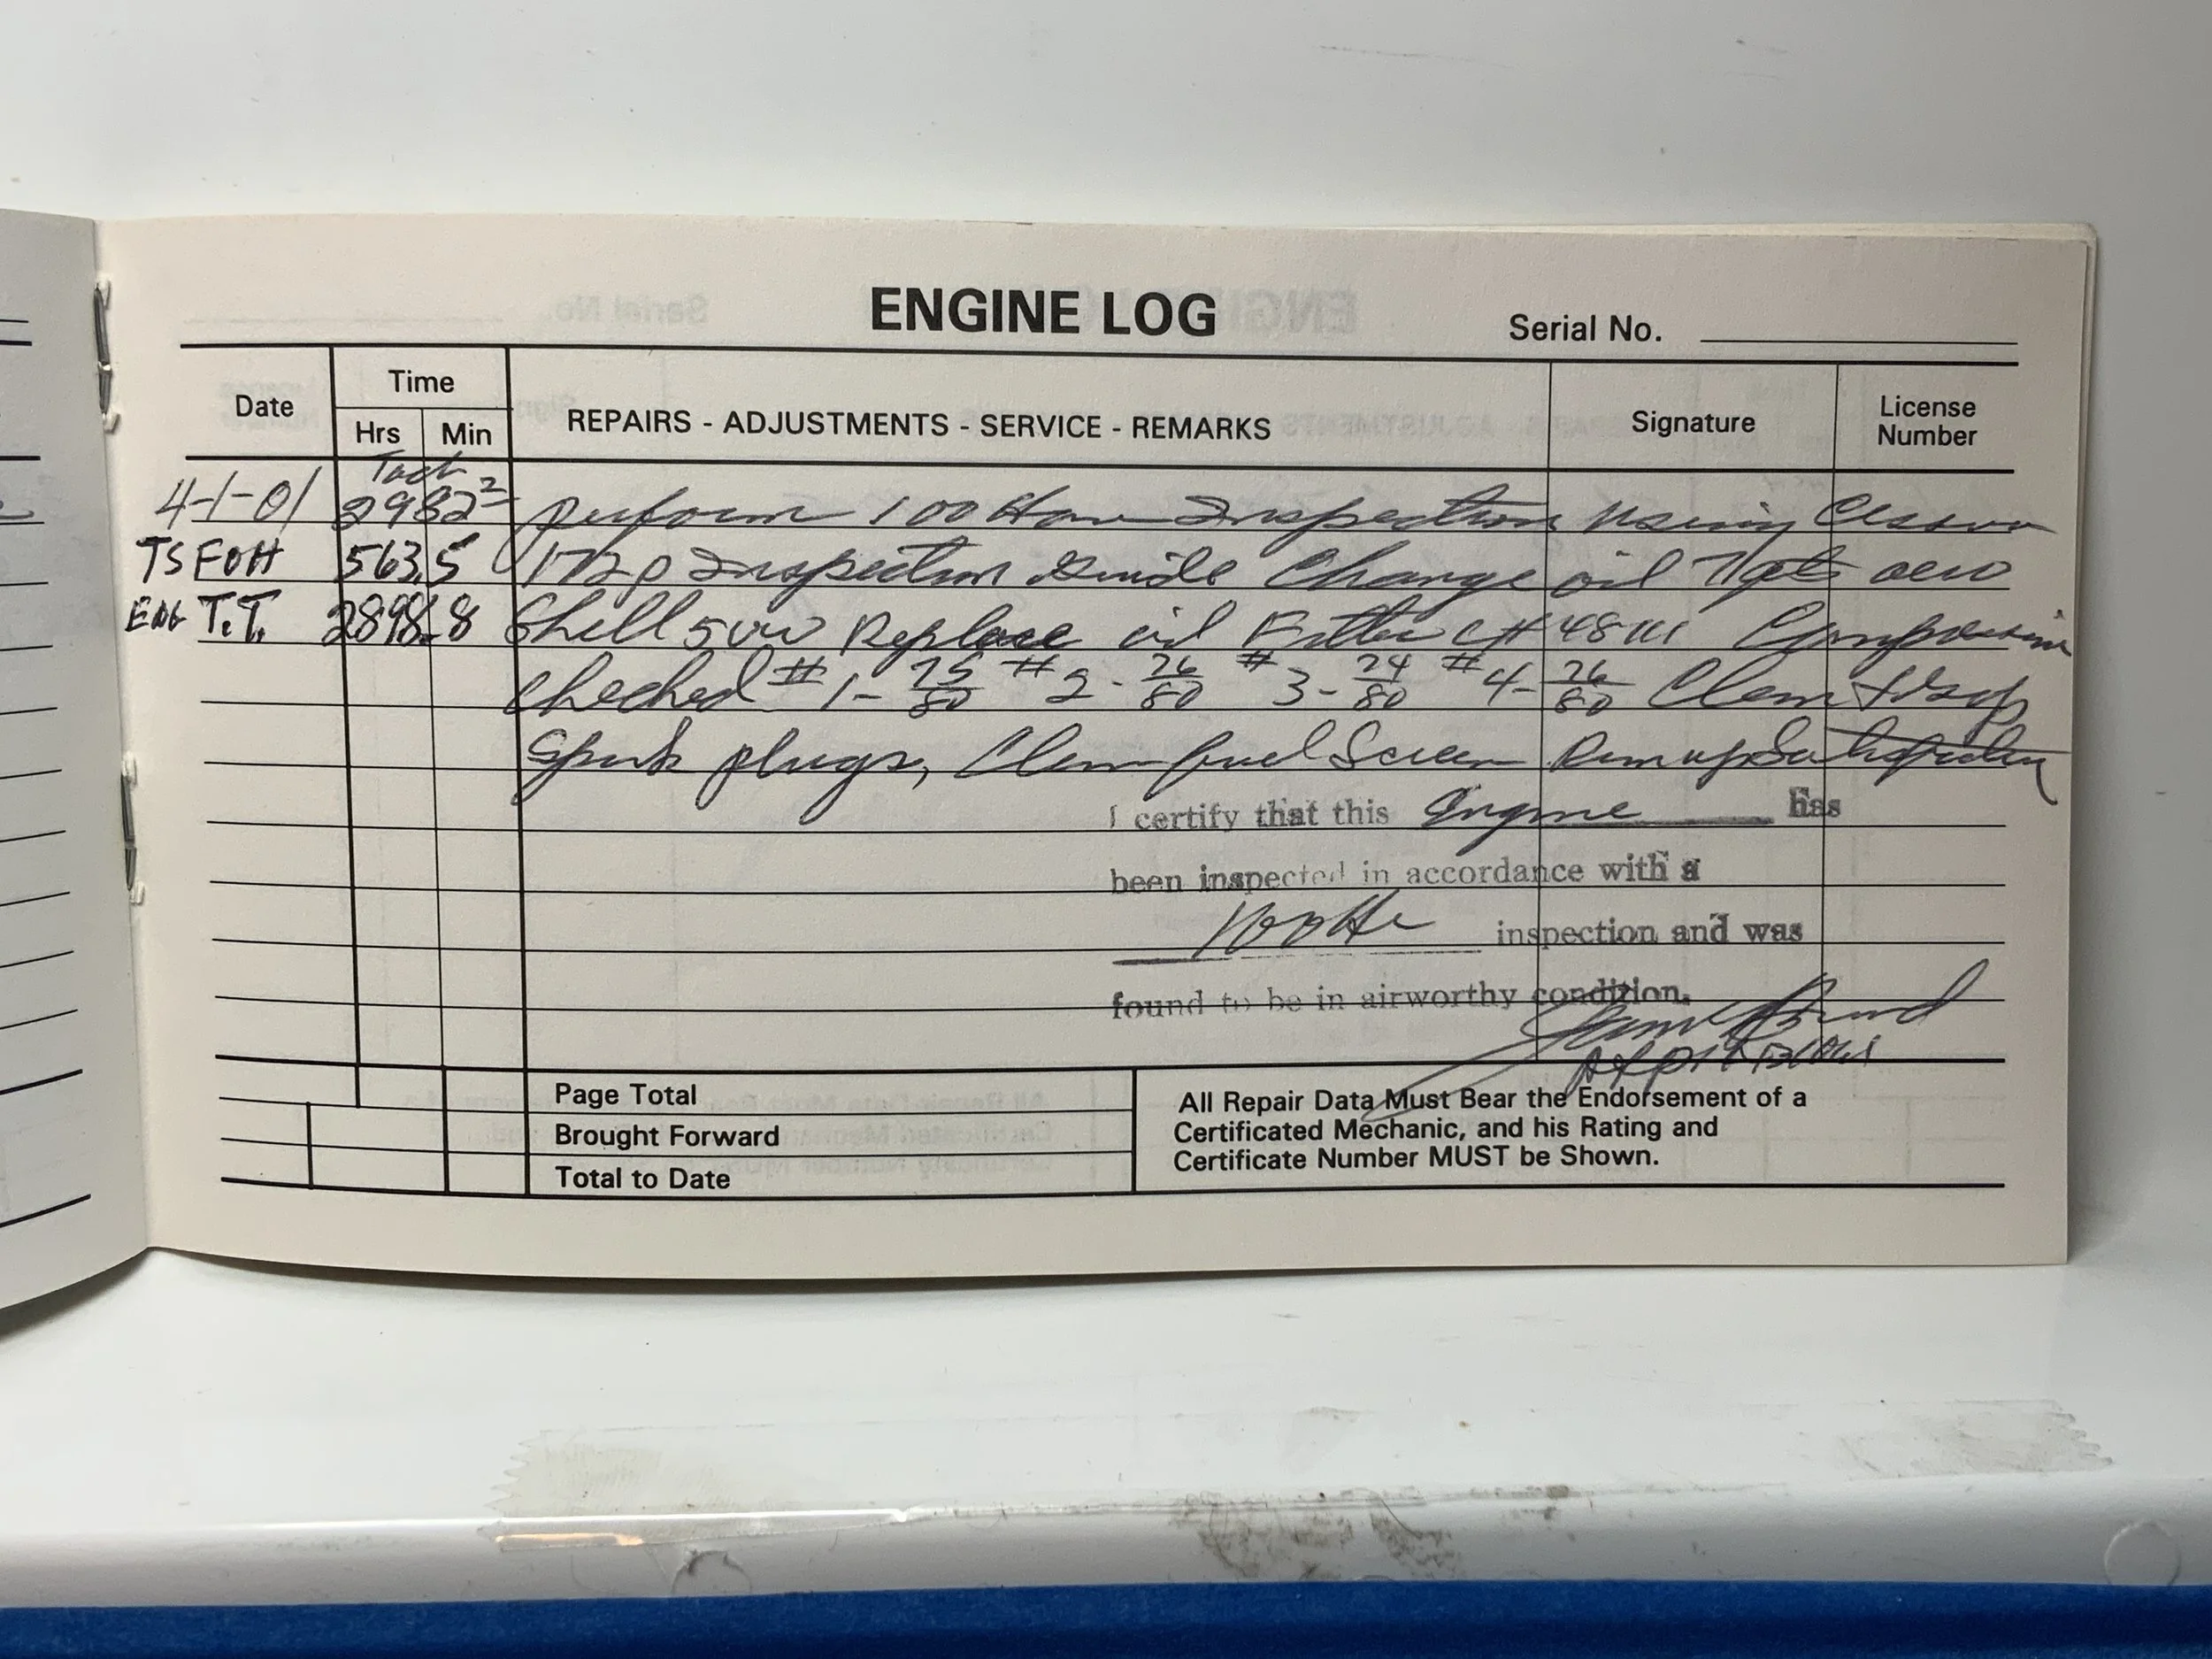 ENGINE LOG
Serial No.
Date
Time
Hrs Min
REPAIRS - ADJUSTMENTS - SERVICE - REMARKS
Signature
License Number
Tach
4-1-01 2982² Perform 100 Hour Inspection using Cessna
TSFOH 563.5 172p Inspection Guide Change oil 7 qts aero
ENG T.T. 2898.8 Shell 50W Replace oil Filter Compression
checked #1-75/80 #2-76/80 #3-74/80 #4-76/80 Clean &
Spark plugs, Clean fuel Screen Run up Satisfactory
I certify that this Engine has
been inspected in accordance with a
100 Hr inspection and was
found to be in airworthy condition.
Page Total
Brought Forward
Total to Date
All Repair Data Must Bear the Endorsement of a
Certificated Mechanic, and his Rating and
Certificate Number MUST be Shown.